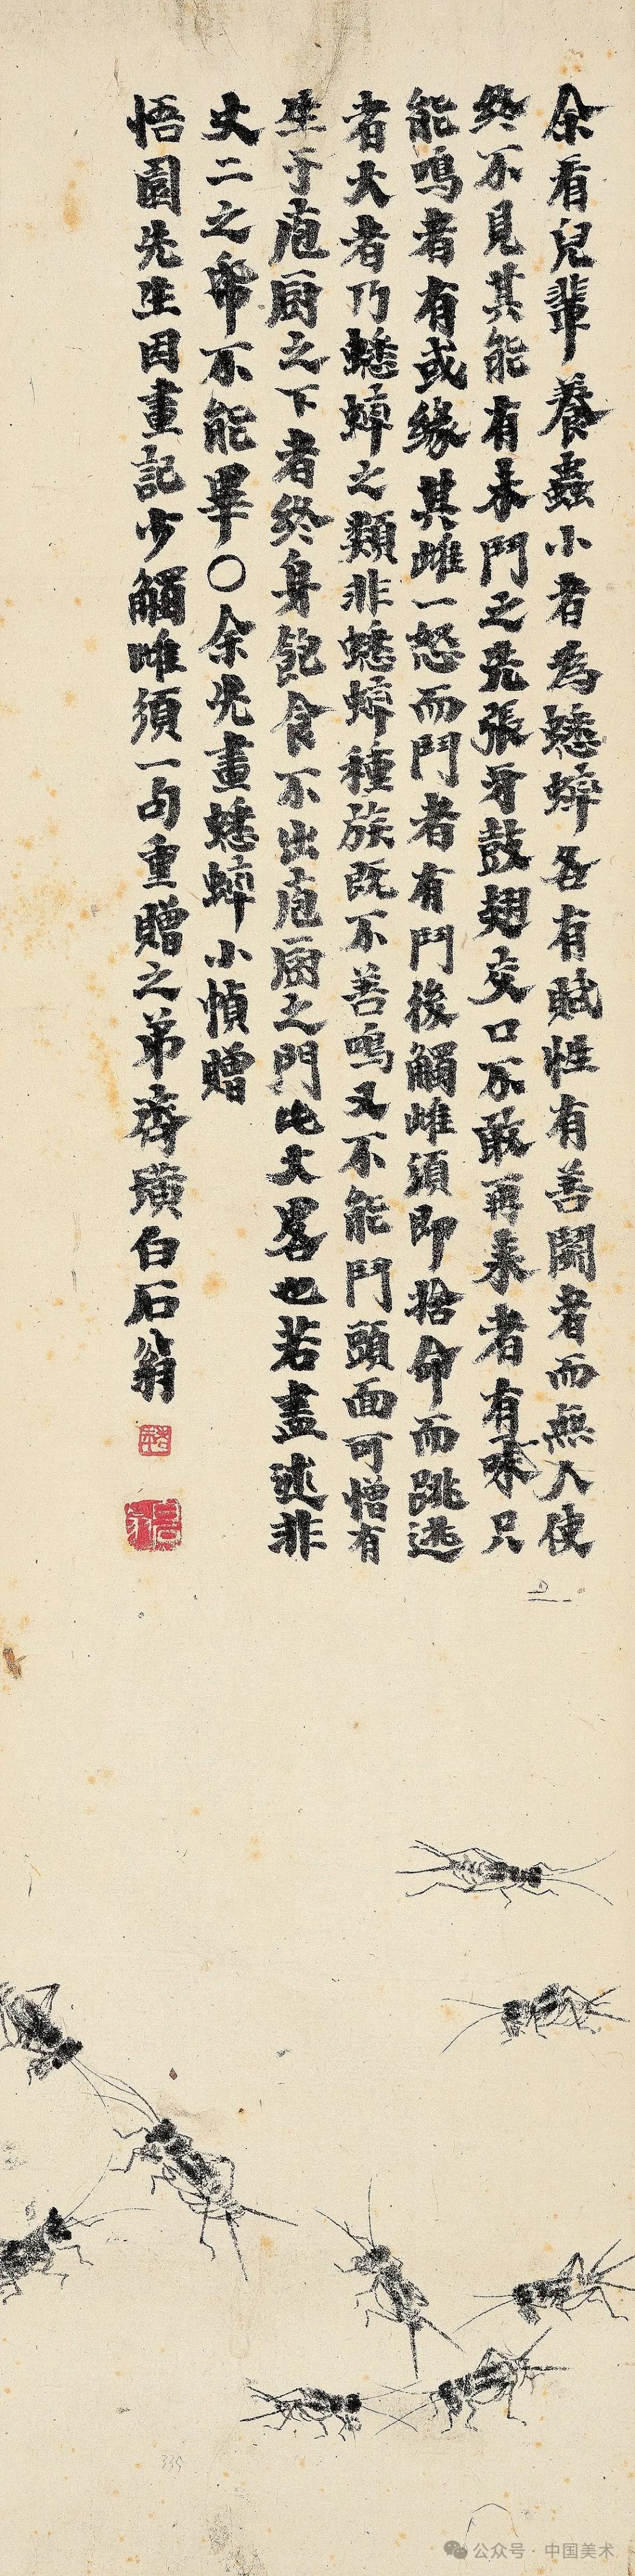 余看兒輩養蟲小者為蟋蟀各有賦性有善鬭者而無人使
終不見其能有未鬥之先張牙鼓翅交口不敢再來者有味只
能鳴者有或緣其雌一怒而鬥者有鬥後觸雌須即捨命而跳逃
者大者乃蟋蟀之類非蟋蟀種族既不善鳴又不能鬥頭面可憎有
生于庖厨之下者終身飽食不出庖厨之門此大畧也若盡述非
丈二之帋不能畢〇余先畫蟋蟀小幀贈
悟園先生因畫記少觸雌須一句重贈之弟齊璜白石翁
公众号·中国美术